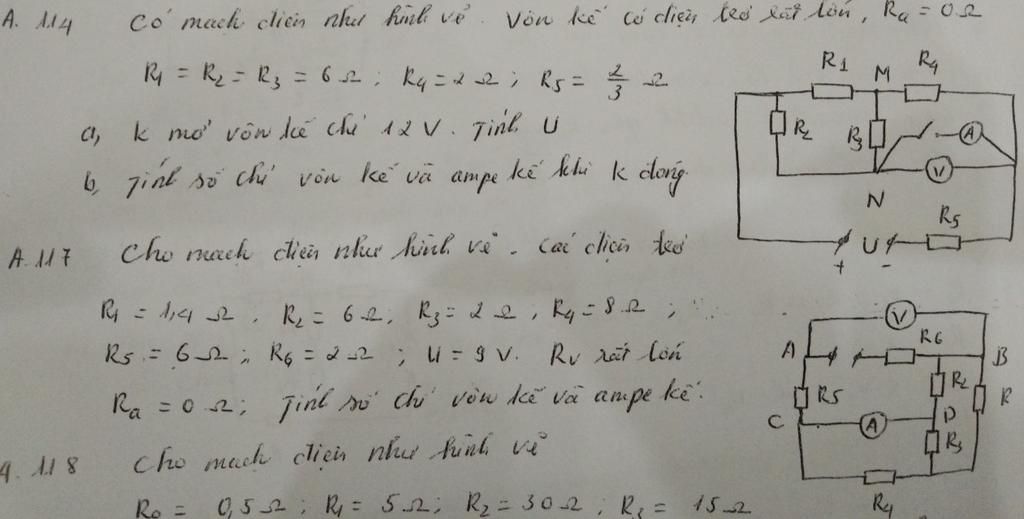 A. 114 Có mạch điện như hình vẽ. Vôn kế có điện trở rất lớn, Ra = 0Ω
R1 = R2 = R3 = 6Ω ; R4 = 2Ω ; R5 = 2/3 Ω
a, k mở vôn kế chỉ 12V. Tính U
b, Tính số chỉ vôn kế và ampe kế khi k đóng.
R1 M R4
R2 R3 A
V
N
R5
U
+ -
A. 117 Cho mạch điện như hình vẽ. Các điện trở
R1 = 1,4Ω. R2 = 6Ω; R3 = 2Ω, R4 = 8Ω ;
R5 = 6Ω ; R6 = 2Ω ; U = 9V. Rv rất lớn
Ra = 0Ω; Tính số chỉ vôn kế và ampe kế.
V
A R6 B
R5 R2 R
C A D
R3
R4
A. 118 Cho mạch điện như hình vẽ
R0 = 0,5Ω ; R1 = 5Ω ; R2 = 30Ω ; R3 = 15Ω